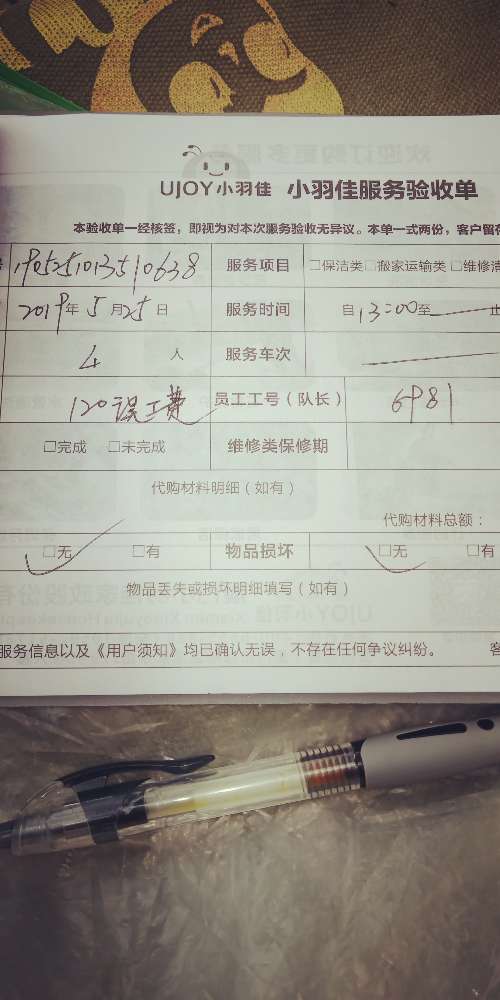 UJOY小羽佳 小羽佳服务验收单
本验收单一经核签，即视为对本次服务验收无异议。本单一式两份，客户留存
1905251013510638 服务项目 □保洁类 □搬家运输类 □维修清
2019年5月25日 服务时间 自13:00至 止
4 人 服务车次
120误工费 员工工号（队长） 6981
□完成 □未完成 维修类保修期
代购材料明细（如有）
代购材料总额：
□无 □有 物品损坏 □无 □有
物品丢失或损坏明细填写（如有）
服务信息以及《用户须知》均已确认无误，不存在任何争议纠纷。 客